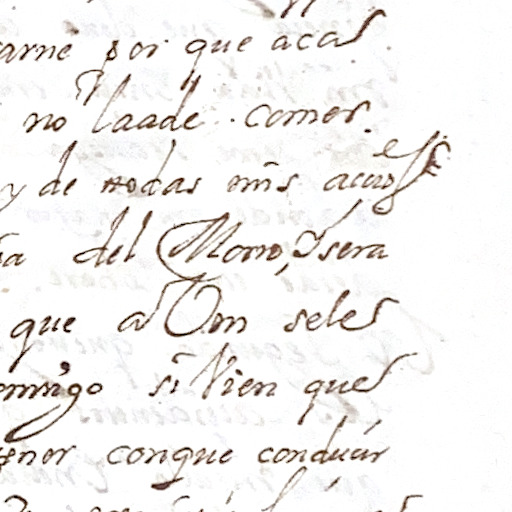 arne por que acas
no laade comer
y de todas mis accio es
del Moro, y sera
que a Don seles
omingo si Vien que
ener conque conducir